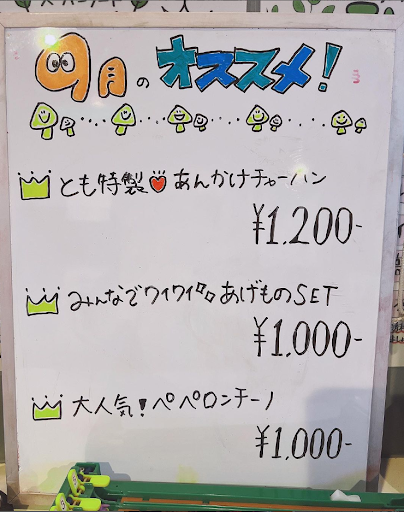 9月のオススメ!
とも特製♥あんかけチャーハン
¥1,200-
みんなでワイワイ♪♪あげものSET
¥1,000-
大人気!ペペロンチーノ
¥1,000-